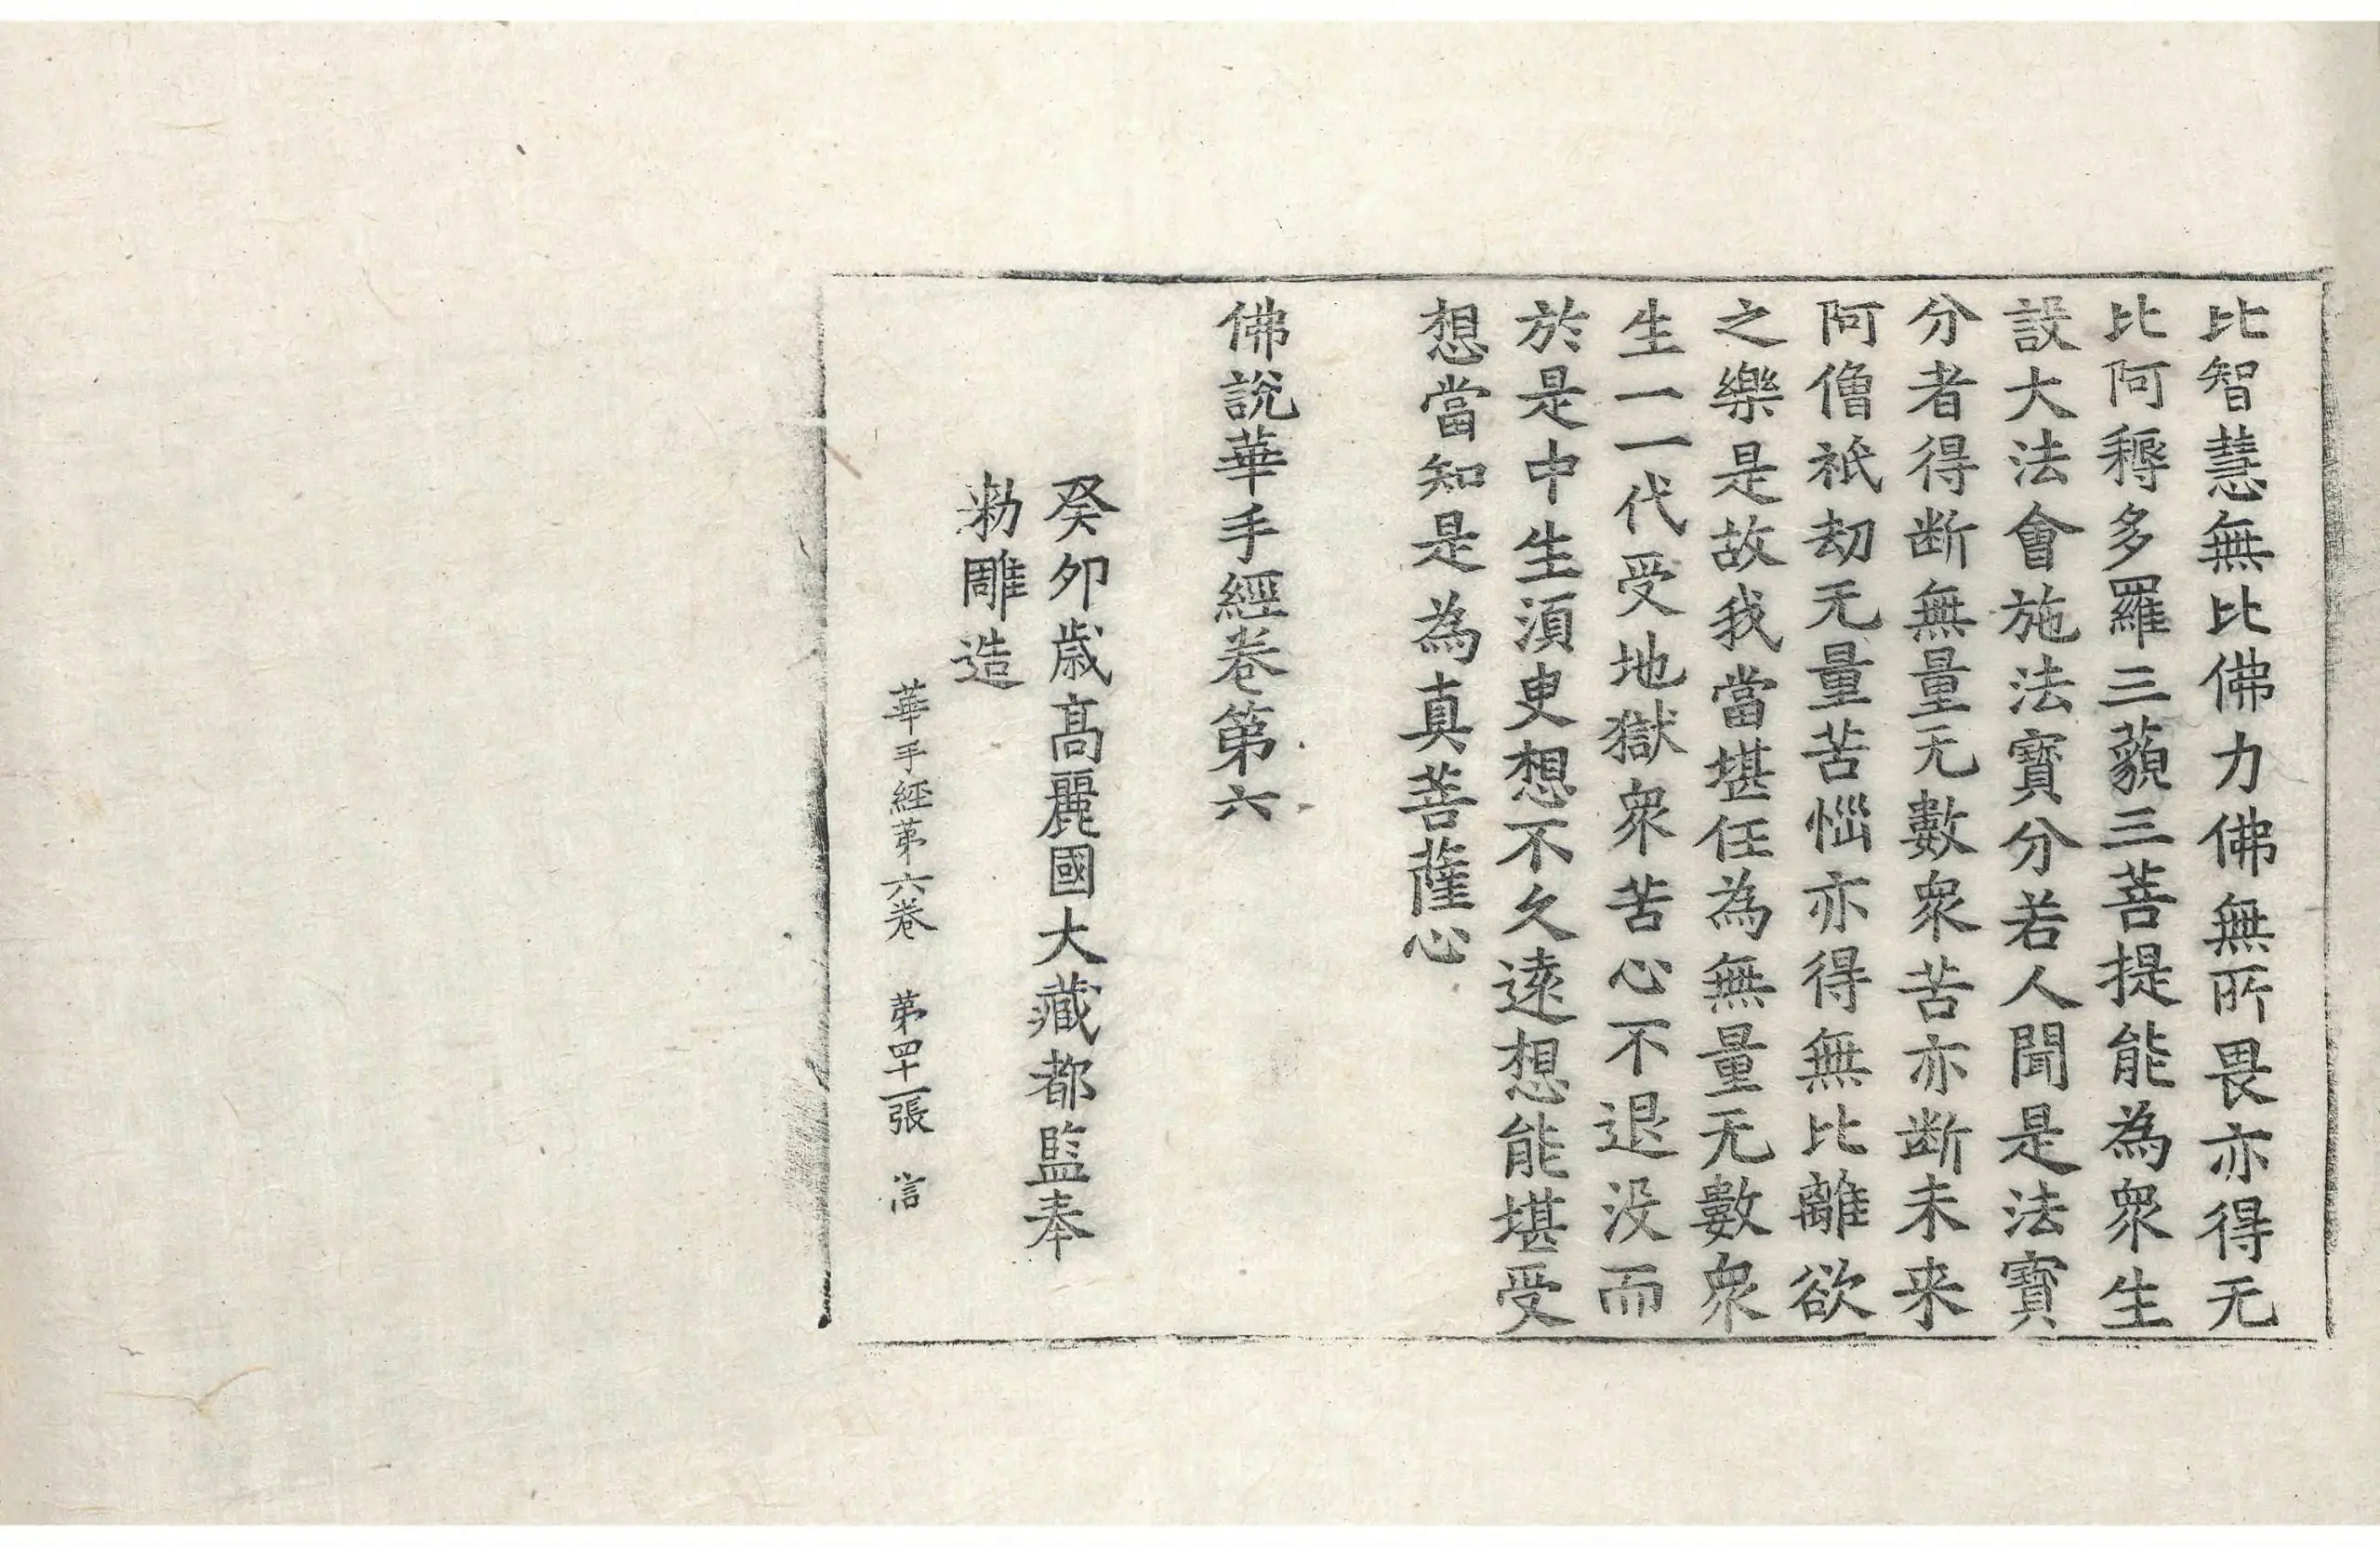 比智慧無比佛力佛無所畏亦得无
比阿耨多羅三藐三菩提能為衆生
設大法會施法寶分若人聞是法寶
分者得断無量无數衆苦亦断未来
阿僧祇劫无量苦惱亦得無比離欲
之樂是故我當堪任為無量无數衆
生一一代受地獄衆苦心不退没而
於是中生湏臾想不久遠想能堪受
想當知是為真菩薩心
佛說華手經卷第六
癸卯歲高麗國大藏都監奉
勑雕造
華手經苐六卷 苐四十一張 言